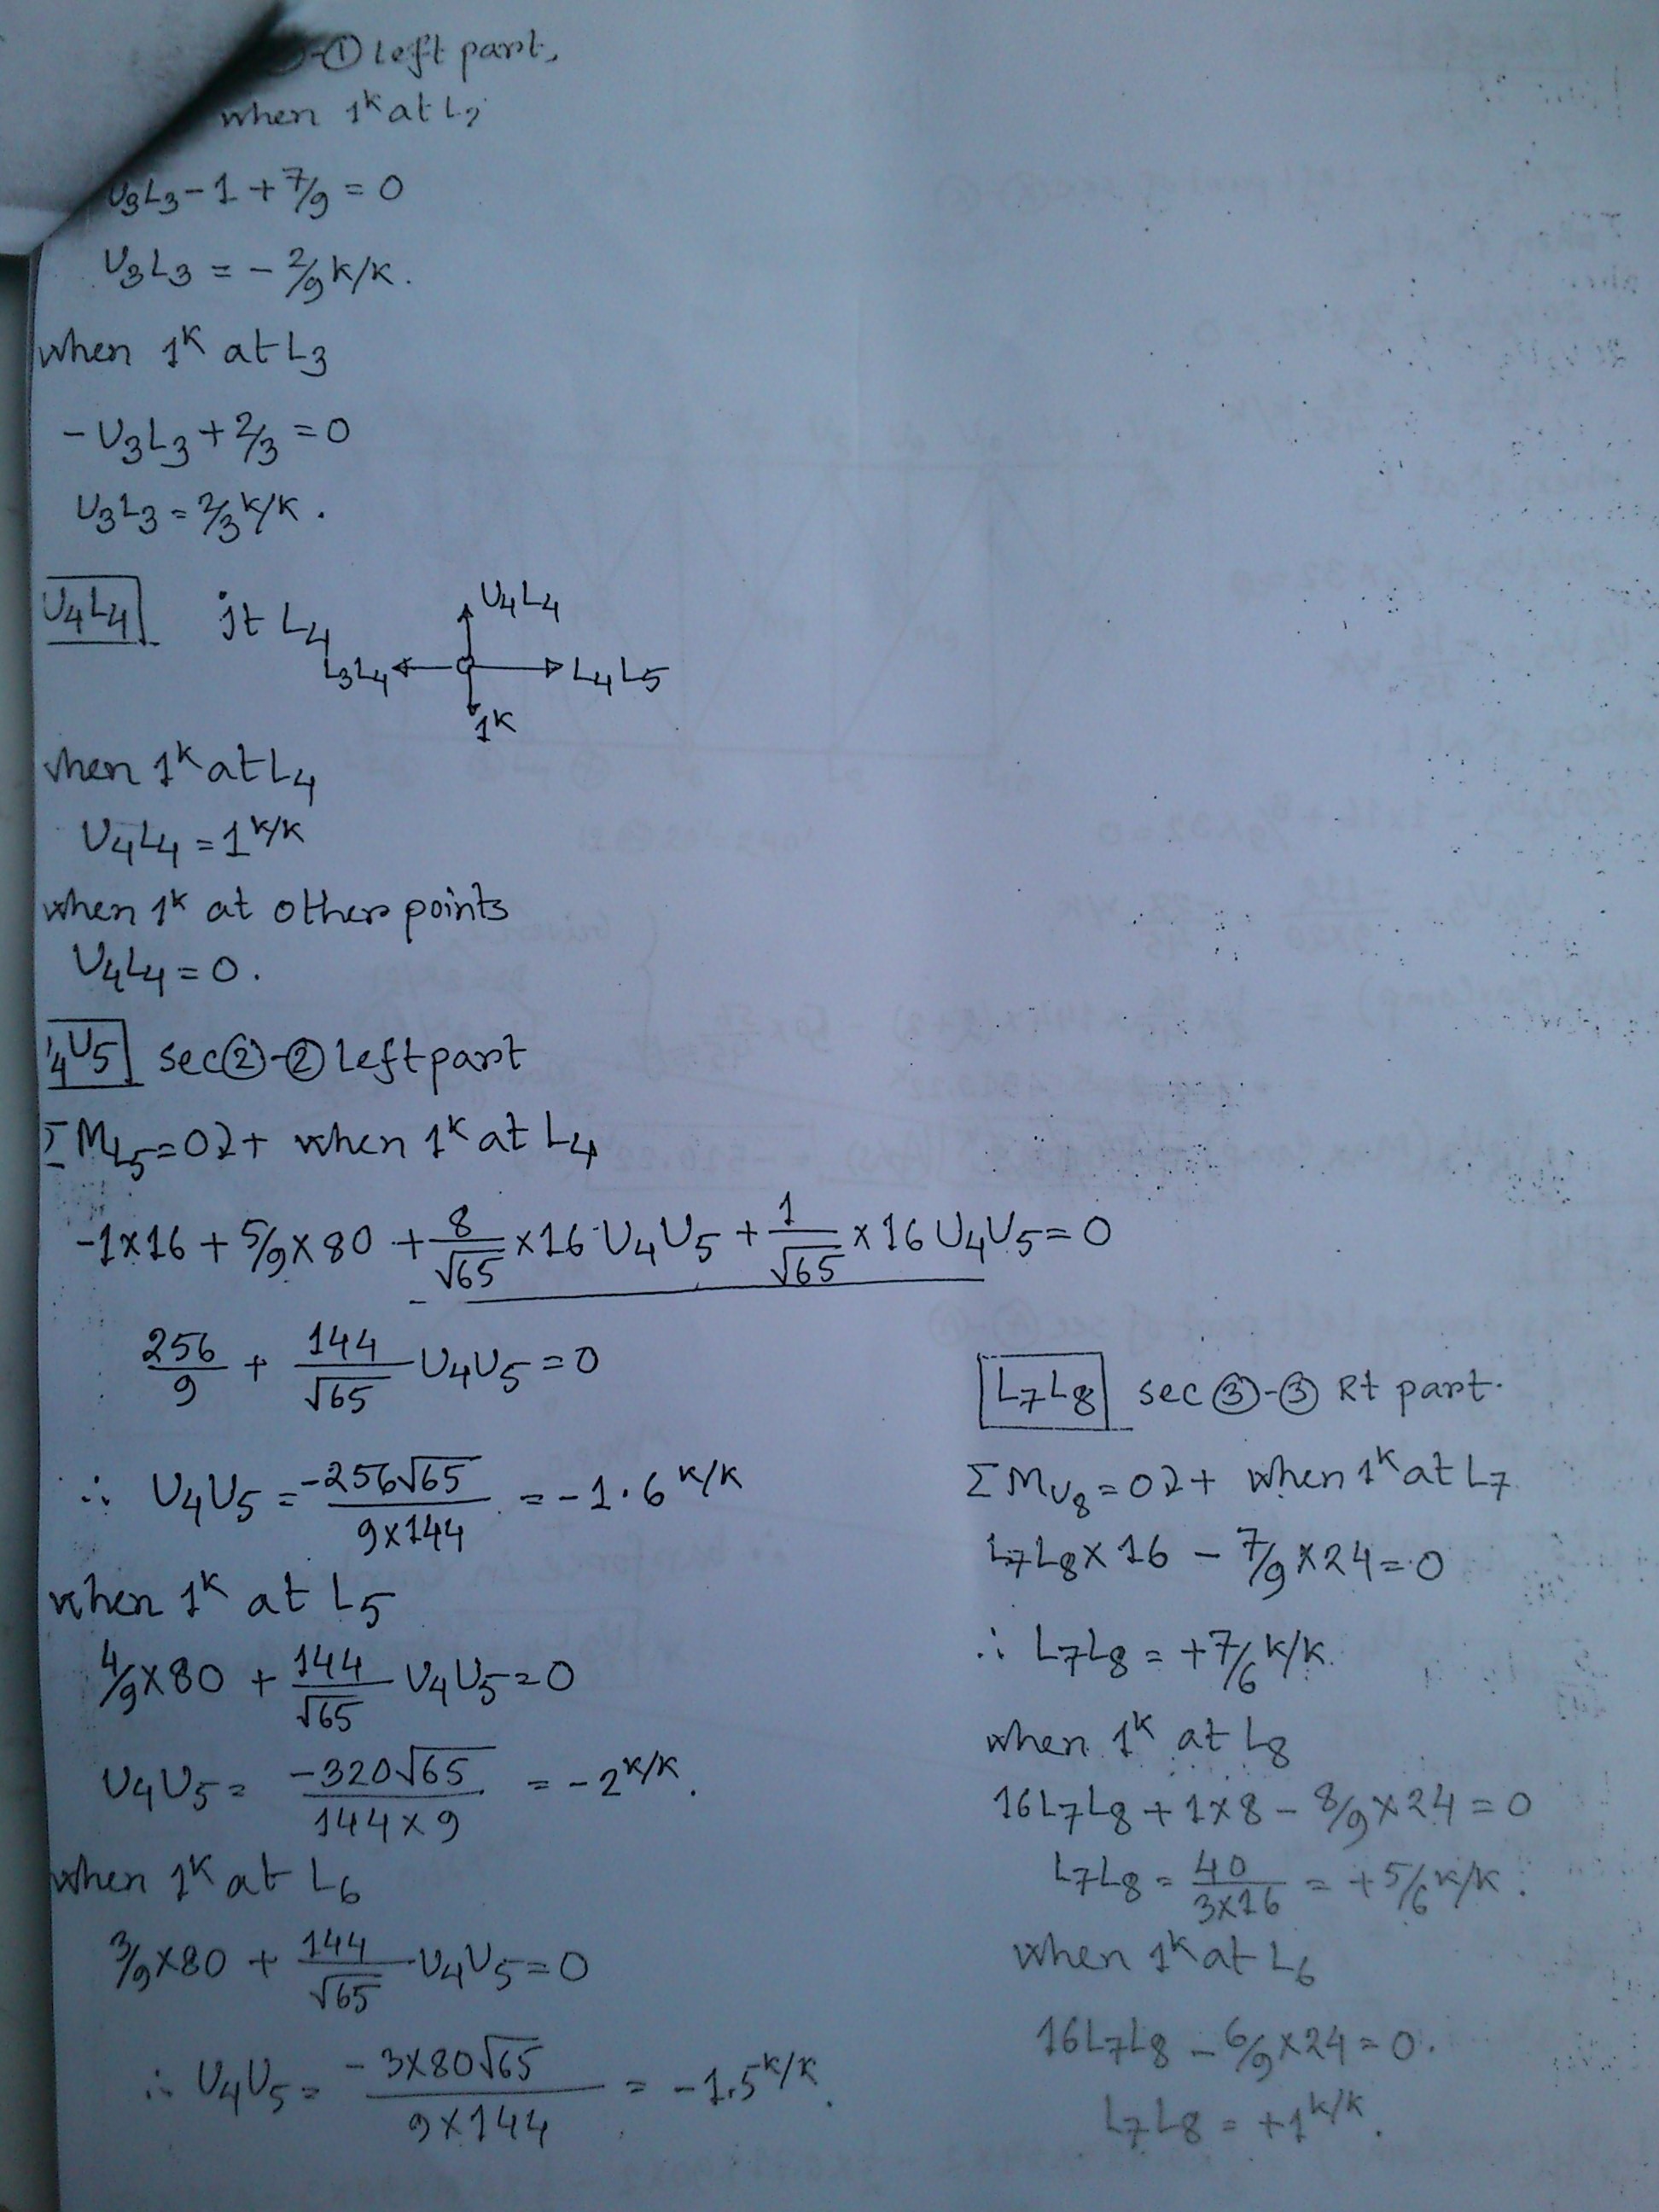 -① Left part,
when 1ᵏ at L₂
U₃L₃ - 1 + 7/9 = 0
U₃L₃ = - 2/9 k/k.
when 1ᵏ at L₃
- U₃L₃ + 2/3 = 0
U₃L₃ = 2/3 k/k.
U₄L₄ jt L₄
U₄L₄
L₃L₄
L₄L₅
1ᵏ
when 1ᵏ at L₄
U₄L₄ = 1 k/k
when 1ᵏ at other points
U₄L₄ = 0.
U₄U₅ sec②-② left part
ΣM_L₅ = 0 ↻+ when 1ᵏ at L₄
-1×16 + 5/9×80 + 8/√65 ×16 U₄U₅ + 1/√65 × 16 U₄U₅ = 0
256/9 + 144/√65 U₄U₅ = 0
∴ U₄U₅ = -256√65 / 9×144 = -1.6 k/k
when 1ᵏ at L₅
4/9×80 + 144/√65 U₄U₅ = 0
U₄U₅ = -320√65 / 144×9 = -2 k/k.
when 1ᵏ at L₆
3/9×80 + 144/√65 U₄U₅ = 0
∴ U₄U₅ = -3×80√65 / 9×144 = -1.5 k/k.
L₇L₈ sec③-③ Rt part.
ΣM_U₈ = 0 ↻+ when 1ᵏ at L₇
L₇L₈×16 - 7/9×24 = 0
∴ L₇L₈ = +7/6 k/k.
when 1ᵏ at L₈
16L₇L₈ + 1×8 - 8/9×24 = 0
L₇L₈ = 40 / 3×16 = +5/6 k/k.
when 1ᵏ at L₆
16L₇L₈ - 6/9×24 = 0.
L₇L₈ = +1 k/k.